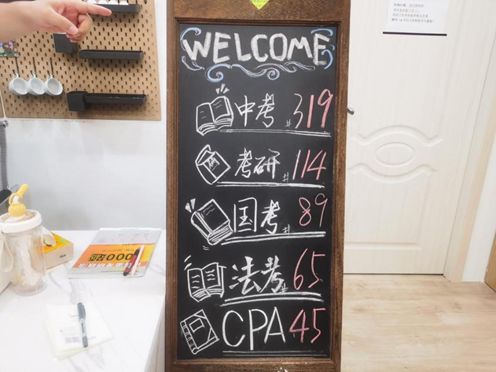 WELCOME
中考 319
考研 114
国考 89
法考 65
CPA 45